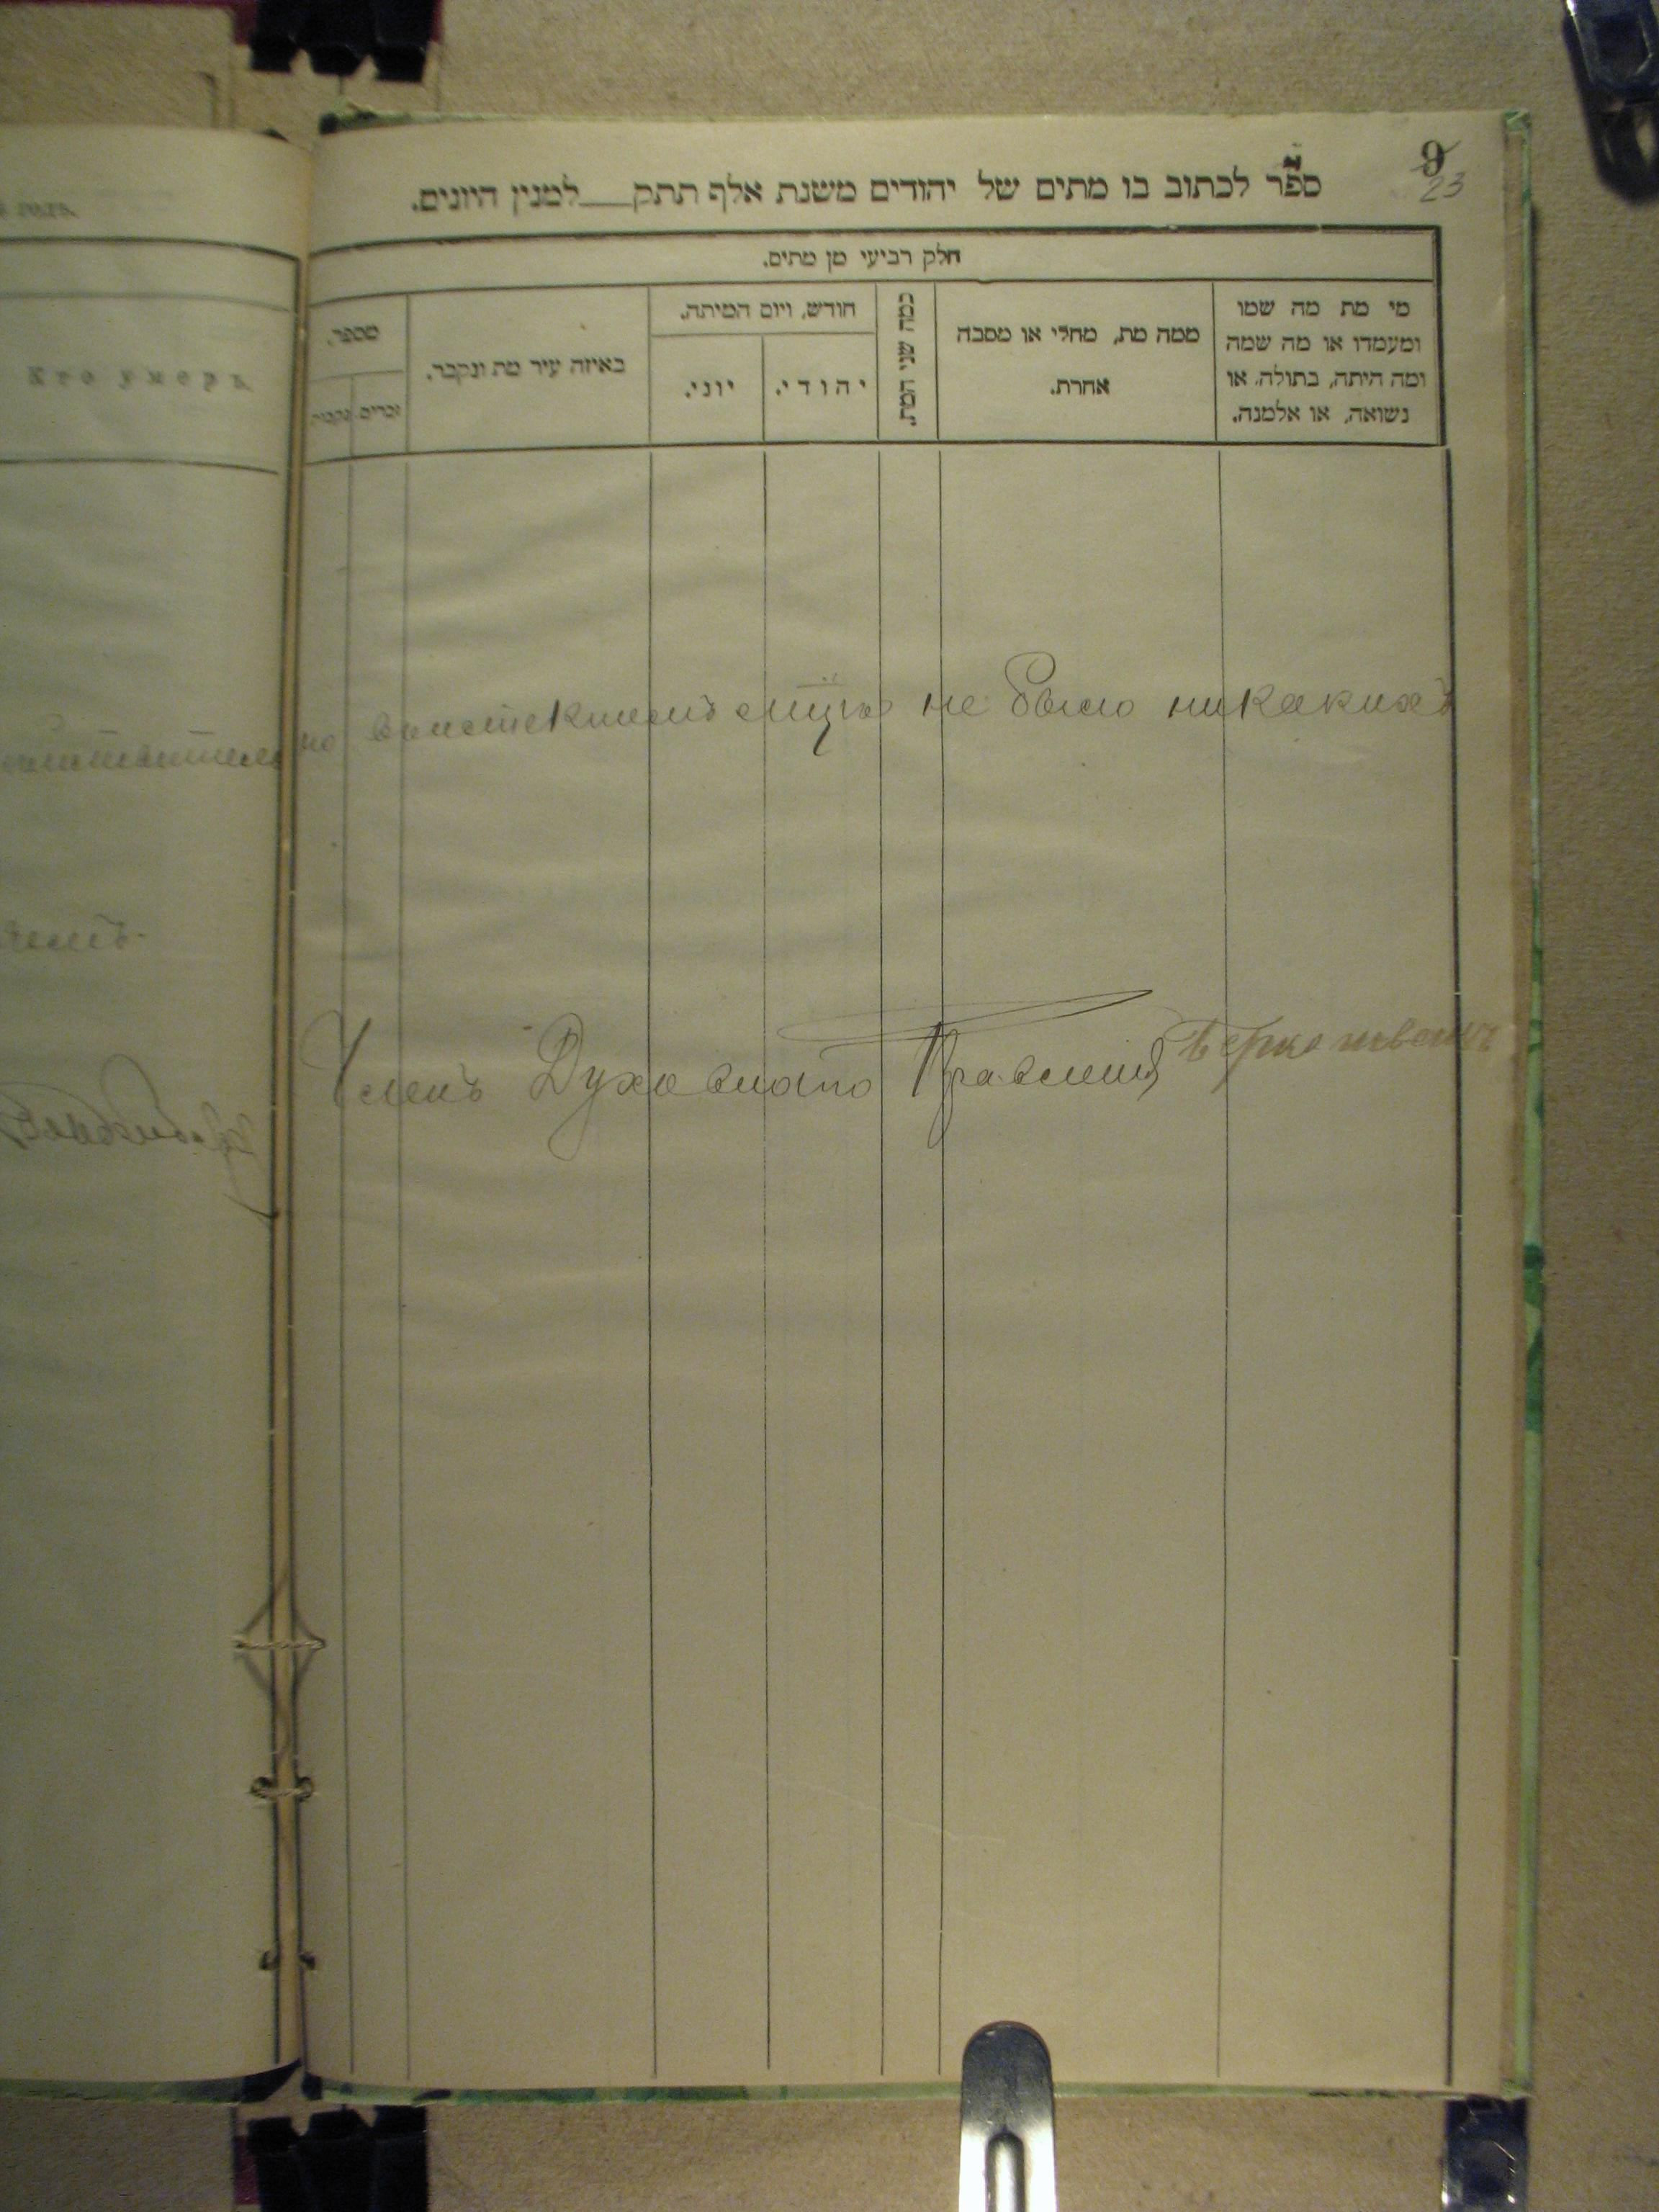 9
23
ספר לכתוב בו מתים של יהודים משנת אלף תתק___למנין היונים.
חלק רביעי מן מתים.
מי מת מה שמו
ומעמדו או מה שמה
ומה היתה, בתולה, או
נשואה, או אלמנה.
ממה מת, מחלי או מסבה
אחרת.
כמה שני המת.
חודש, ויום המיתה.
יהודי.
יוני.
באיזה עיר מת ונקבר.
מספר.
זכרים.
נקבות.
Кто умеръ
годъ.
не было никакихъ
Членъ Духовнаго Правленія